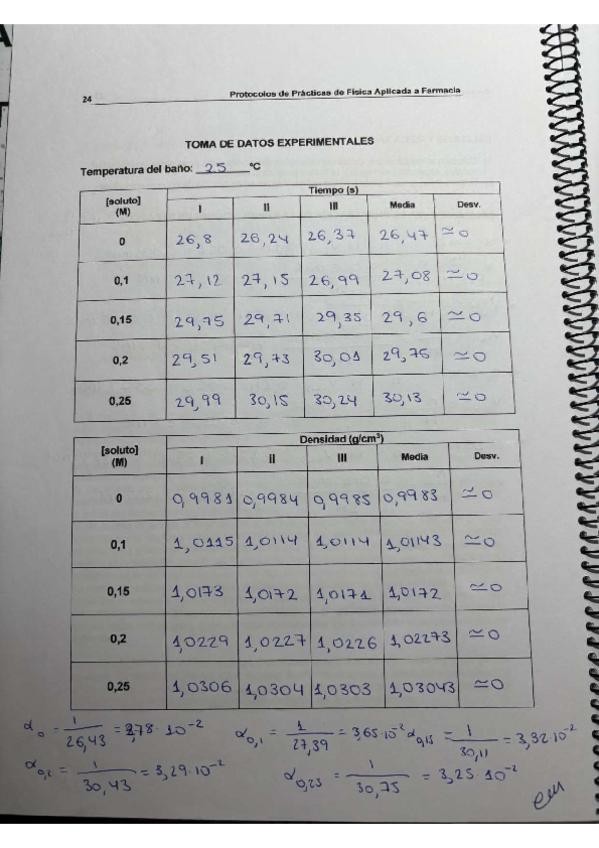 24 Protocolos de Prácticas de Física Aplicada a Farmacia
TOMA DE DATOS EXPERIMENTALES
Temperatura del baño: 25 ºC
[soluto] (M) Tiempo (s)
I II III Media Desv.
0 26,8 26,24 26,37 26,47 ≃0
0,1 27,12 27,15 26,99 27,08 ≃0
0,15 29,75 29,71 29,35 29,6 ≃0
0,2 29,51 29,73 30,01 29,75 ≃0
0,25 29,99 30,15 30,24 30,13 ≃0
[soluto] (M) Densidad (g/cm³)
I II III Media Desv.
0 0,9981 0,9984 0,9985 0,9983 ≃0
0,1 1,0115 1,0114 1,0114 1,01143 ≃0
0,15 1,0173 1,0172 1,0171 1,0172 ≃0
0,2 1,0229 1,0227 1,0226 1,02273 ≃0
0,25 1,0306 1,0304 1,0303 1,03043 ≃0
α₀ = 1/26,43 = 3,78·10⁻² α₀,₁ = 1/27,39 = 3,65·10⁻² α₀,₁₅ = 1/30,11 = 3,32·10⁻²
α₀,₂ = 1/30,43 = 3,29·10⁻² α₀,₂₅ = 1/30,75 = 3,25·10⁻²